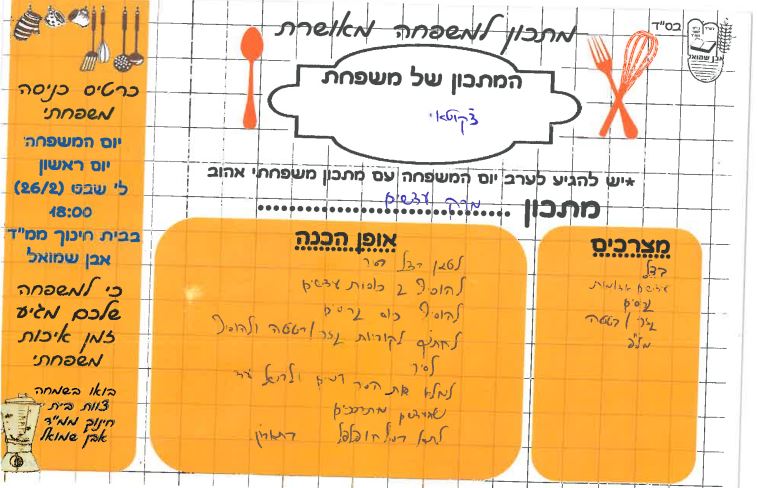 בס"ד
אבן שמואל
מתכון למשפחה מאושרת
המתכון של משפחת
*יש להגיע לערב יום המשפחה עם מתכון משפחתי אהוב
מתכון מרק עדשים
מצרכים
בצל
עדשים אדומות
גריסים
גזר / בטטה
אופן הכנה
לטגן בצל בסיר
להוסיף 2 כוסות עדשים
להוסיף כוס גריסים
לחתוך לקוביות גזר / בטטה ולהוסיף
לסיר
למלא את הסיר במים ולבשל עד
שהעדשים מתרככים
כרטיס כניסה
משפחתי
יום המשפחה
יום ראשון
ל' שבט (26/2)
18:00
בבית חינוך ממ"ד
אבן שמואל
כי למשפחה
שלכם מגיע
זמן איכות
משפחתי
בואו בשמחה
צוות בית
חינוך ממ"ד
אבן שמואל